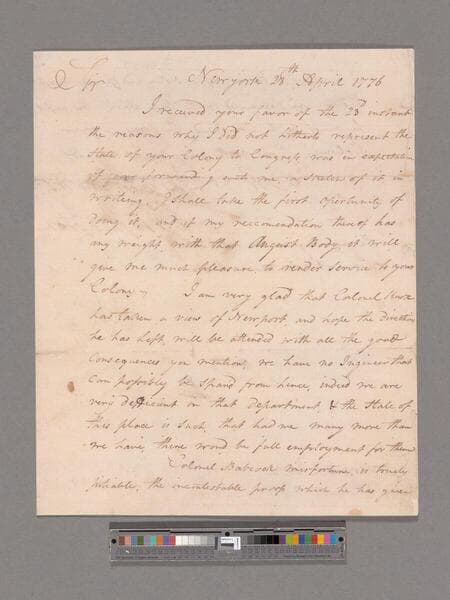 Sir Newyork 28th April 1776
I received your favor of the 23d instant
the reasons why I did not hitherto represent the
State of your Colony to Congress was in expectation
of your forwarding unto me, a sketch of it in
writeing. I shall take the first opertunity of
doing it, and if my reccomendation thereof has
any weight, with that August Body, it will
give me much pleasure, to render service to your
Colony — I am very glad that Colonel Knox
has taken a view of Newport, and hope the direction
he has left, will be attended with all the good
Consequences you mention, we have no Ingineer that
Can possibly be spard from hence, indeed we are
very deficient on that department & the State of
this place is such, that had we many more than
we have, there woud be full employment for them
Colonel Babcock misfortune is truely
pitiable, the incontestable proofs which he has given